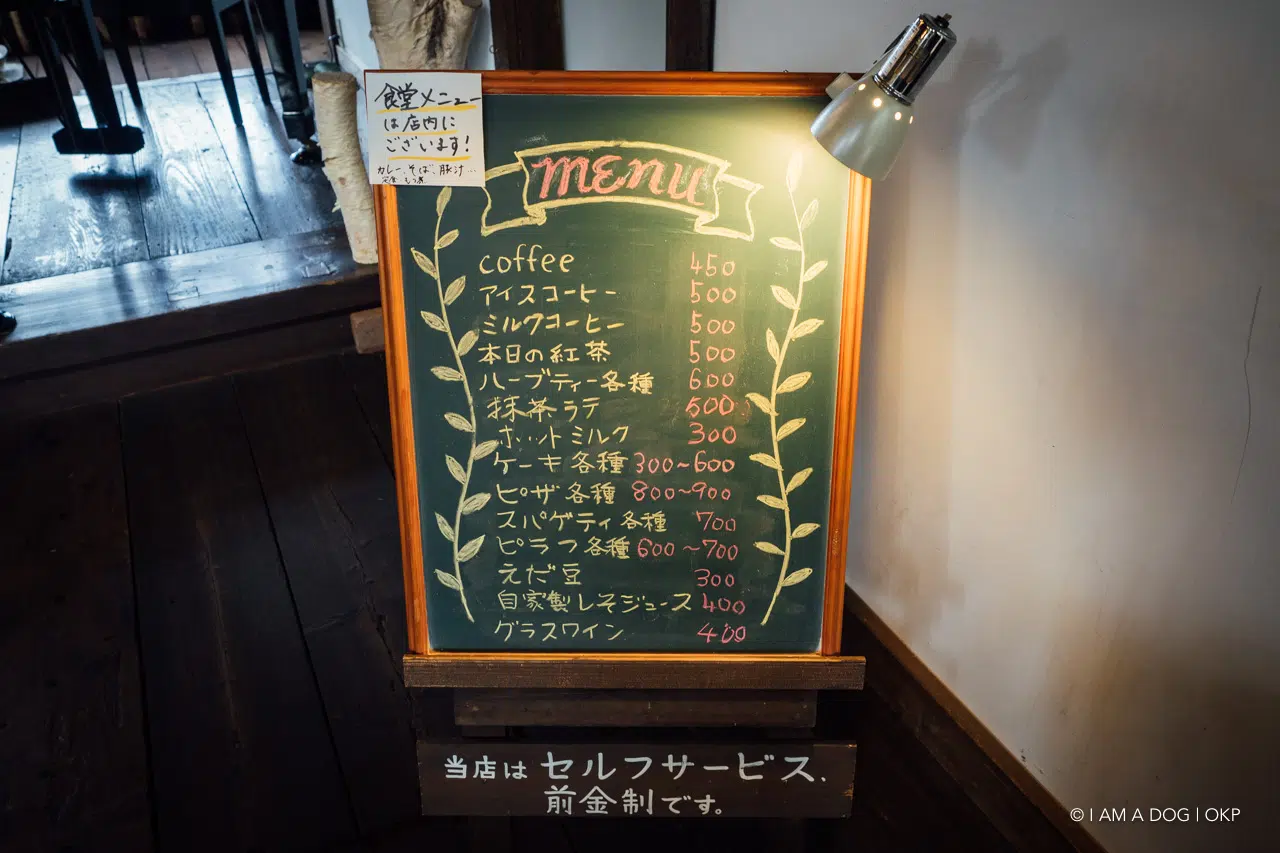 食堂メニュー
は店内に
ございます!
カレー、そば、豚汁...
MENU
coffee 450
アイスコーヒー 500
ミルクコーヒー 500
本日の紅茶 500
ハーブティー各種 600
抹茶ラテ 500
ホットミルク 300
ケーキ各種 300~600
ピザ各種 800~900
スパゲティ各種 700
ピラフ各種 600~700
えだ豆 300
自家製しそジュース 400
グラスワイン 400
当店はセルフサービス、
前金制です。
© I AM A DOG | OKP